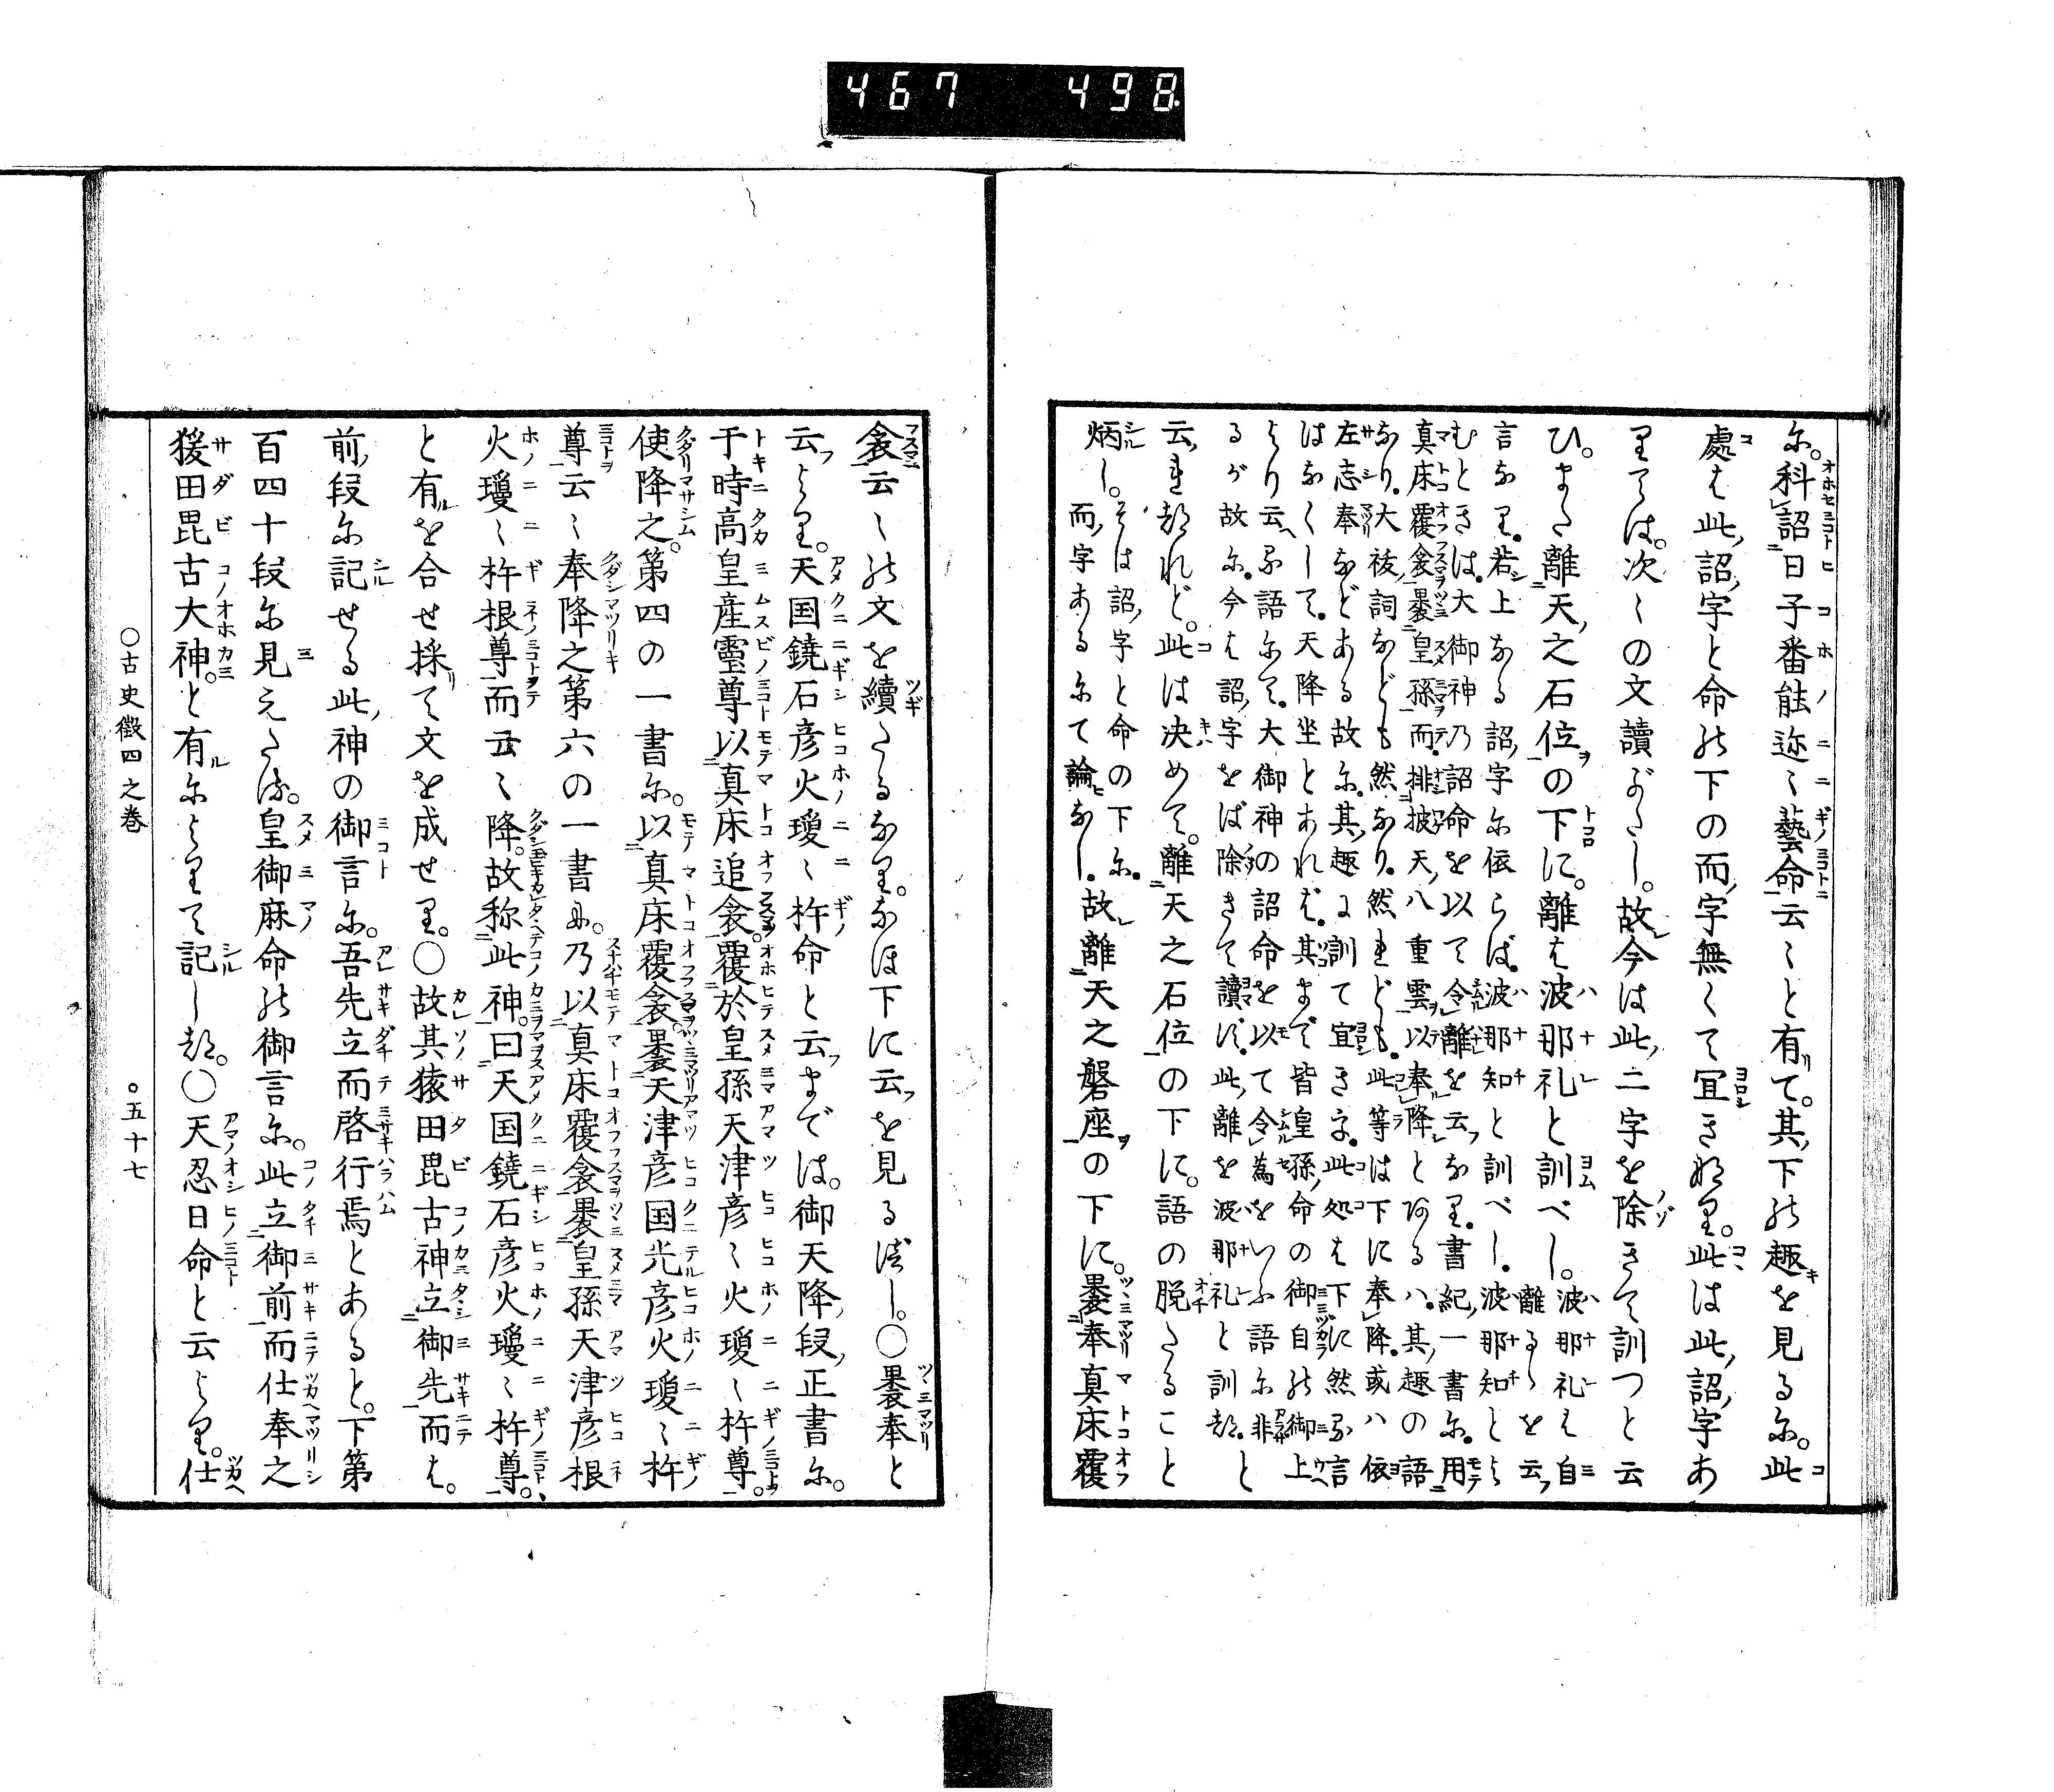 467 498
尓。科詔日子番能迩〻藝命云〻と有て。其下能趣を見る尓。此
處は此詔字と命能下の而字無くて宜きなり。此は此詔字あ
りては。次〻の文讀がたし。故今は此二字を除きて訓つと云
ひ。また離天之石位の下に。離は波那礼と訓べし。波那礼は自
離るゝを云
言なり。若上なる詔字尓依らば。波那知と訓べし。波那知とよ
むときは。大御神乃詔命を以て令離を云なり。書紀一書尓。用
真床覆衾裹皇孫而。排披天八重雲以奉降とあるハ。其趣の語
なり。大祓詞なども然なり。然れども。此等は下に奉降。或ハ依
左志奉などある故尓。其趣に訓て宜きを。此処は下に然る言
はなくして。天降坐とあれば。其まで皆皇孫命の御自能御上
より云る語尓て。大御神の詔命を以て令為をいふ語尓非ざ
るが故尓。今は詔字をば除きて讀ず。此離を波那礼と訓都。と
云れ都れど。此は决めて。離天之石位の下に。語の脱たること
炳し。そは詔字と命の下尓。
而字ある尓て論なし。故離天之磐座の下に。裹奉真床覆
衾云〻能文を續たるなり。なほ下に云を見るべし。〇裹奉と
云より。天国鐃石彦火瓊〻杵命と云までは。御天降段正書尓。
于時高皇産靈尊以真床追衾。覆於皇孫天津彦〻火瓊〻杵尊。
使降之。第四の一書尓。以真床覆衾。裹天津彦国光彦火瓊〻杵
尊云〻奉降之第六の一書尓。乃以真床覆衾裹皇孫天津彦根
火瓊〻杵根尊而云〻降。故称此神。曰天国鐃石彦火瓊〻杵尊。
と有を合せ採て文を成せり。〇故其猿田毘古神立御先而は。
前段尓記せる此神の御言尓。吾先立而啓行焉とあると。下第
百四十段尓見えたる。皇御麻命能御言尓。此立御前而仕奉之
猨田毘古大神。と有尓よりて記し都。〇天忍日命と云より。仕
〇古史徴四之巻 〇五十七